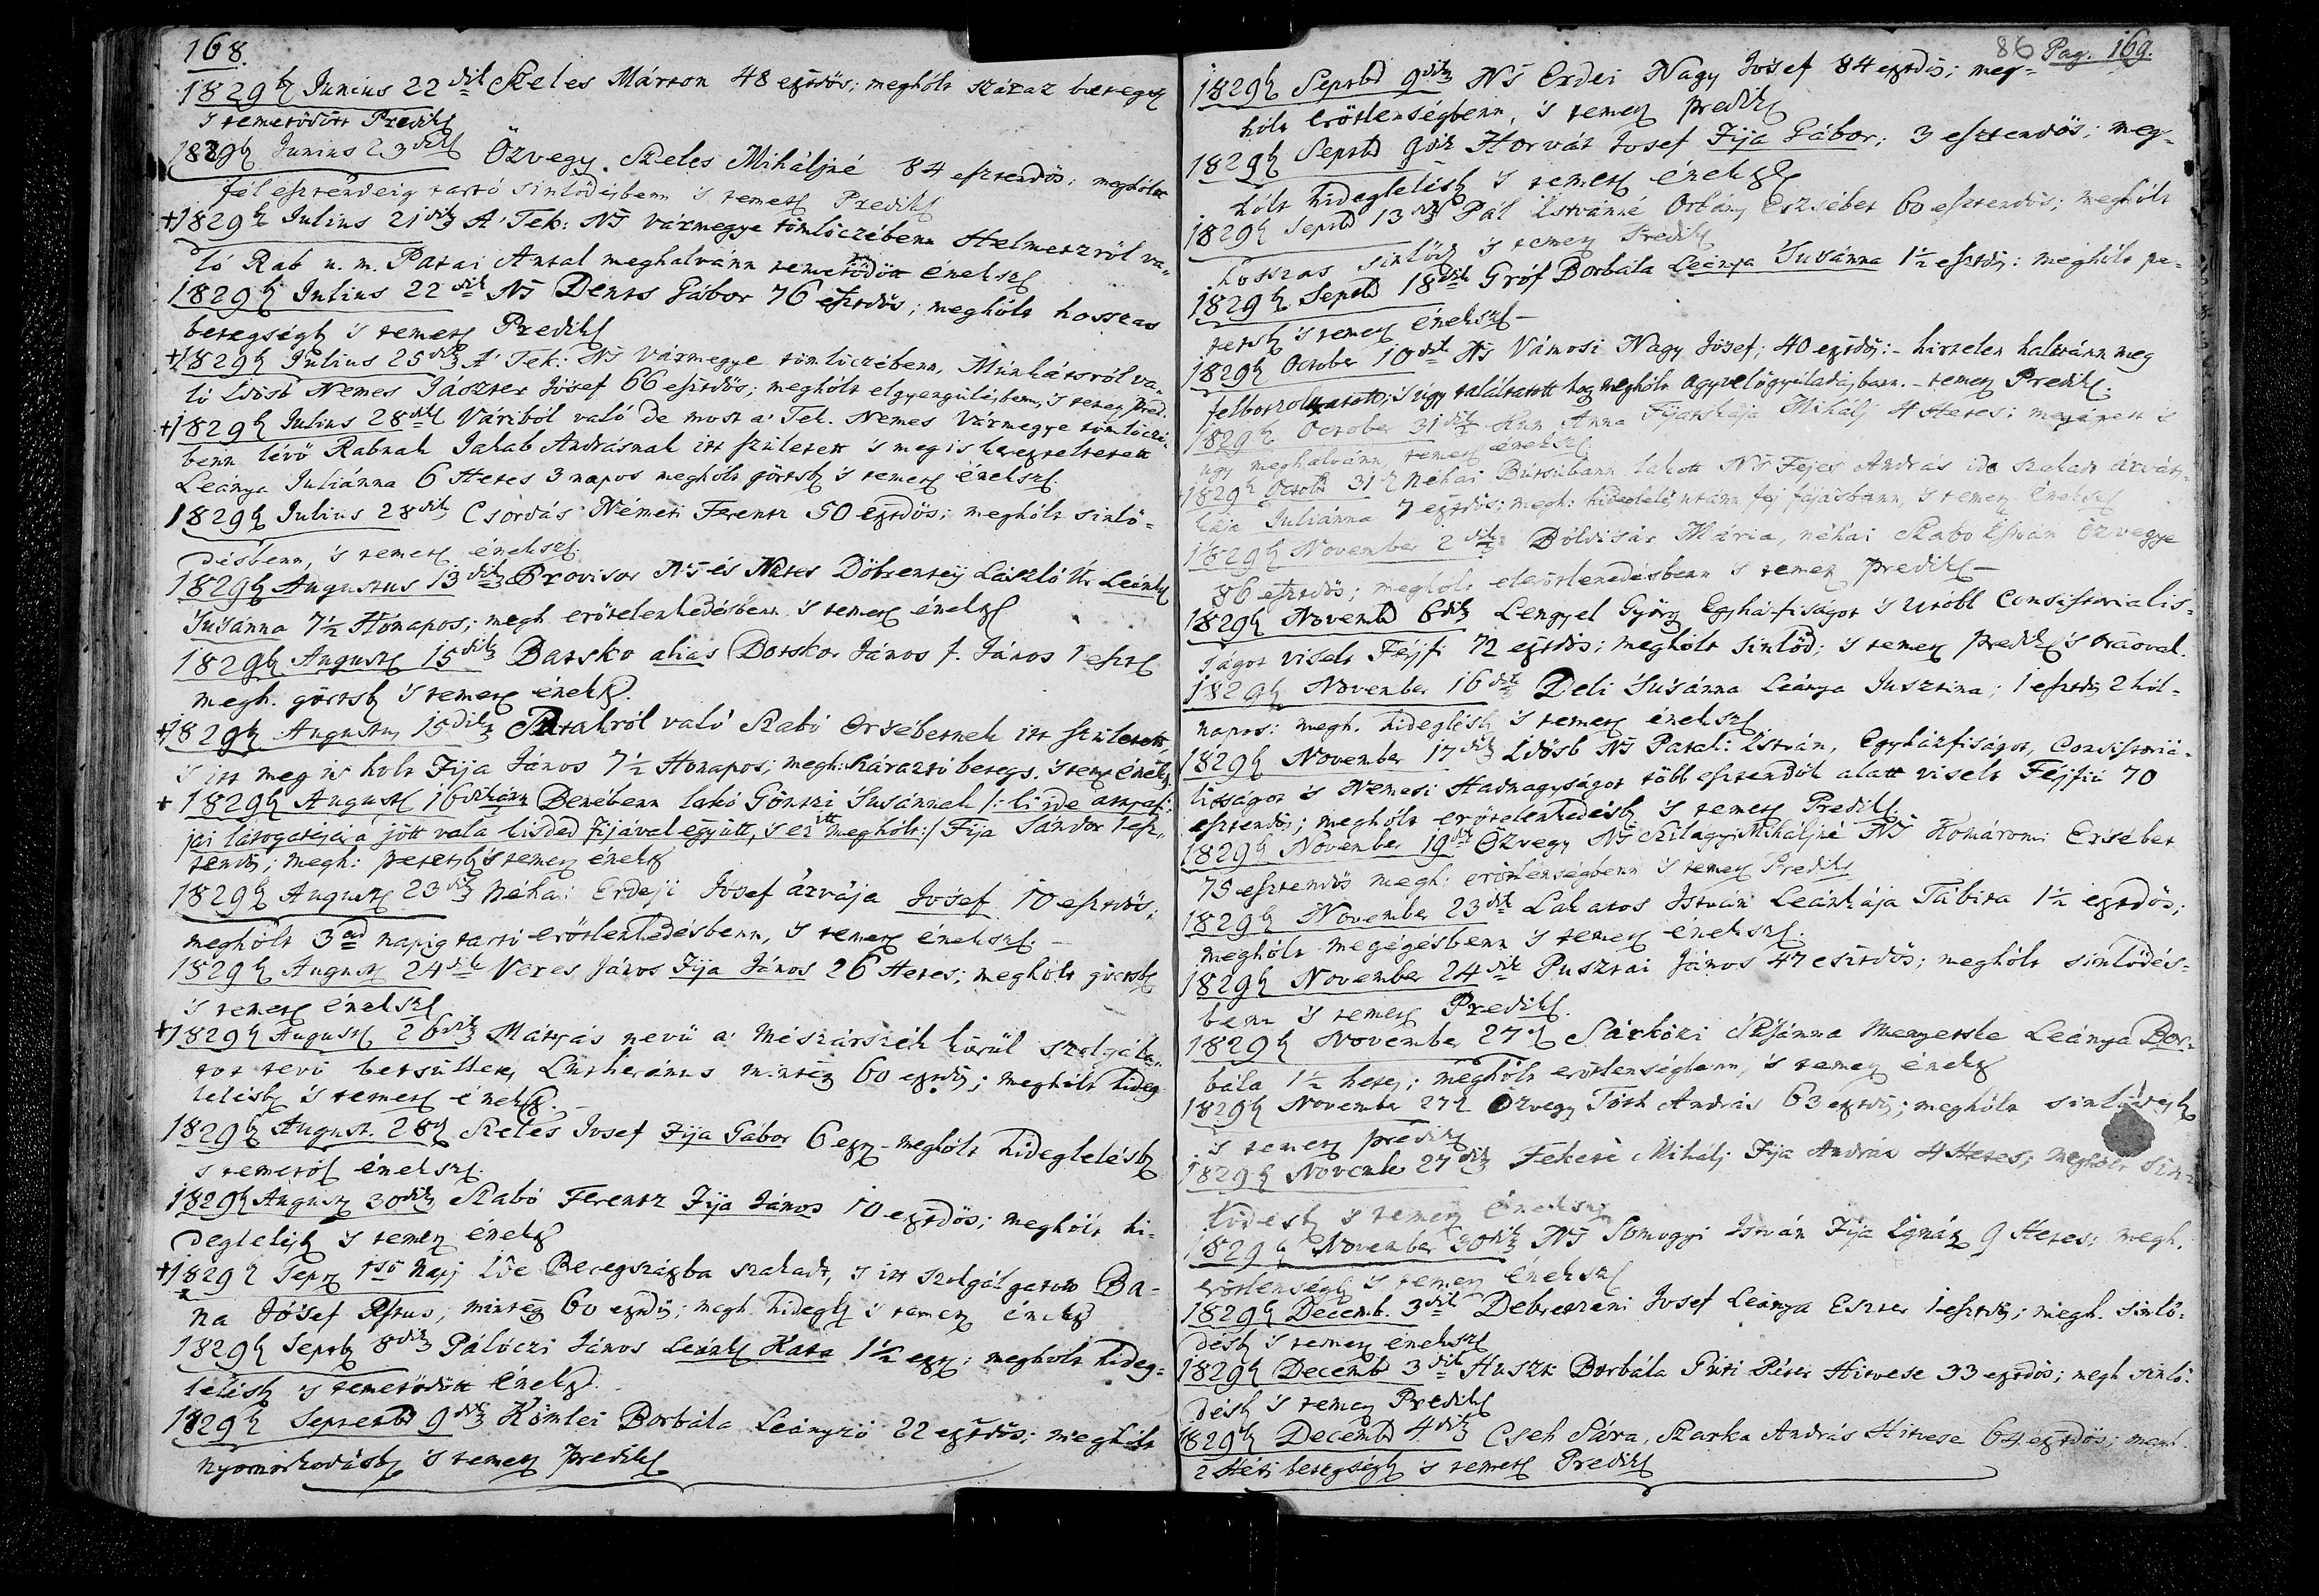 168.
1829b Junius 22dik Szeles Márton 48 esztdős; meghólt száraz beteg
's temetődött Predik
1829b Junius 23dik Özvegy Szeles Mihájné 84 esztendős; meghólt
fél esztendeig tartó sinlődésbenn 's temet Predik
+1829b Julius 21dik A' Tek: Ns Vármegye tömlöczébenn Helmetzről va-
ló Rab u. m. Patai Antal meghalvánn temetődött éneksz
1829b Julius 22dik Ns Dents Gábor 76 esztdős; meghólt hosszas
betegségb 's temet Predik
+1829b Julius 25dik A' Tek: Ns Vármegye tömlöczébenn, Munkátsról va-
ló Idősb Nemes Jászter Jósef 66 esztdős; meghólt elgyengülésbenn, 's temet Pred:
+1829b Julius 28dik Váriból való de most a' Tek. Nemes Vármegye tömlöczé-
benn lévő Rabnak Jakab Andrásnak itt született 's meg is kereszteltetett
Leánya Juliánna 6 Hetes 3 napos meghólt görtsb 's temet éneksz.
1829b Julius 28dik Csordás Németi Ferentz 50 esztdős; meghólt sinlő-
désbenn, 's temet éneksz.
1829b Augustus 13dik Provisor Ns és Nztes Döbrenteÿ László Úr Leánk
Susánna 7½ Hónapos; megh erőtelenkedésbenn 's temet éneksz
1829b August 15dik Batsko alias Dotskor János f. János 1 eszt
megh. görtsb 's temet éneksz.
+1829b August 15dik Patakról való Szabó Ersébetnek itt született,
's itt meg is holt Fija János 7½ Honapos; megh: Száraztó betegs. 's temet éneksz
+ 1829b August 16dikánn Benébenn lakó Göntzi Susánnak /: ki ide attyafi:
jai látogatására jött vala kisded Fijával együtt, 's ez itt meghólt:/ Fija Sándor 1 esz-
tendős; megh: petetsb 's temet éneksz
1829b August 23dik Néhai Erdeji Josef árvája Jósef 10 esztdős;
meghólt 3ad napig tartó erőtlenkedésbenn, 's temet éneksz. –
1829b August 24dik Veres János Fija János 26 Hetes; meghólt görtsb
's temet éneksz
+1829b August 26dik Mátyás nevű a' Mészárszék körül szolgála-
tot tevő betsülletes Lutheránus mintegy 60 esztdős; meghólt hideg-
lelésb 's temet éneksz.
1829b August. 28d Szeles Josef Fija Gábor 6 esz – meghólt hideglelésb
's temetőd éneksz.
1829b August 30dik Szabó Ferentz Fija János 10 esztdős; meghólt hi-
deglelésb 's temet éneksz
+1829b Sept 1ső Napj Ide Beregszászba szakadt, 's itt szolgálgatott Ba-
na Jósef Pistus, mintegy 60 esztdős; megh. hidegl 's temet éneksz
1829b Septb 8dik Pálóczi János Leánk Kata 1½ esz; meghólt hideg-
lelésb 's temetődött éneksz.
1829b Septembr 9dik Kömlei Borbála Leányzó 22 esztdős; meghólt
nyomorkodásb 's temet Predik
86 Pag. 169.
1829b Septbr 9dik Ns Erdei Nagy Jósef 84 esztdős; meg-
hólt erőtlenségbenn, 's temet Predik
1829b Septbr 9dik Horvát Josef Fija Gábor; 3 esztendős; meg-
hólt hideglelésb 's temet éneksz
1829b Septbr 13dik Pál Istvánné Orbány Erzsébet 60 esztendős; meghólt
hosszas sinlőd 's temet Predik
1829b Septbr 18dik Gróf Borbála Leánya Susánna 1½ esztdős: meghólt pe-
tetsb 's temet éneksz –
1829b October 10dik Ns Vámosi Nagy Jósef; 40 esztdős: – hirtelen halvánn meg
felbontzoltatott; 's úgy találtatott hogy meghólt agyvelőgyúladásbann. – temet Predik.
1829b October 31dik Kun Anna Fijatskája Mihálj 4 Hetes; megégett 's
úgy meghalvánn, temet éneksz.
1829b Octobr 31d Néhai Bútsúbann lakott Ns Fejes András ide szakadt árváts-
kája Juliánna 7 esztdős; megh: hideglelés utánn fej fájásbann, 's temet éneksz
1829b November 2dik Bóldisár Mária, néhai Szabó István Özvegye
86 esztdős; meghólt elerőtlenedésbenn 's temet Predik –
1829b Novembr 6dik Lengyel György Egyházfiságot 's utóbb Consistorialis-
ságot viselt Féjfi 72 esztdős; meghólt sinlőd; 's temet Predik 's orával.
1829b November 16dik Deli Susánna Leánya Jusztina; 1 esztdős 2 hól-
napos; megh. hideglelésb 's temet éneksz
1829b November 17dik Idősb Ns Pataki István, Egyházfiságot, Consistoriá-
liságot 's Nemesi Hadnagyságot több esztendők alatt viselt Féjfiú 70
esztendős; meghólt erőtelenkedésb 's temet Predik.
1829b November 19dik Özvegy Ns Szilagyi Miháljné Ns Komáromi Ersébet
75 esztendős megh: erőtlenségbenn 's temet Predik
1829b November 23dik Lakatos István Leánkája Tábita 1½ esztdős;
meghólt megégésbenn 's temet éneksz.
1829b November 24dik Pusztai János 47 esztdős; meghólt sinlődés-
benn 's temet Predik.
1829b November 27d Sárközi Susánna menyetske Leánya Bor-
bála 1½ hetes; meghólt erőtlenségbenn, 's temet éneksz
1829b November 27d Özvegy Tóth András 63 esztdős; meghólt sinlődésb
's temet predik
1829b Novembe 27dik Fekete Mihálj Fija András 4 Hetes; meghólt sin-
lődésb 's temet éneksz
1829b November 30dik Ns Somogyi István Fija Ignátz 9 Hetes; megh.
erőtlenségb 's temet éneksz
1829b Decemb. 3dik Debretzeni Josef Leánya Eszter 1 esztdős; megh. sinlő-
désb 's temet éneksz
1829b Decembr 3dik Huszti Borbála Püti Péter Hitvese 33 esztdős; megh sinlő-
désb 's temet Predik
1829b Decembr 4dik Cseh Sára, Szarka András Hitvese 64 esztdős; megh.
2 Heti betegségb 's temet Predik